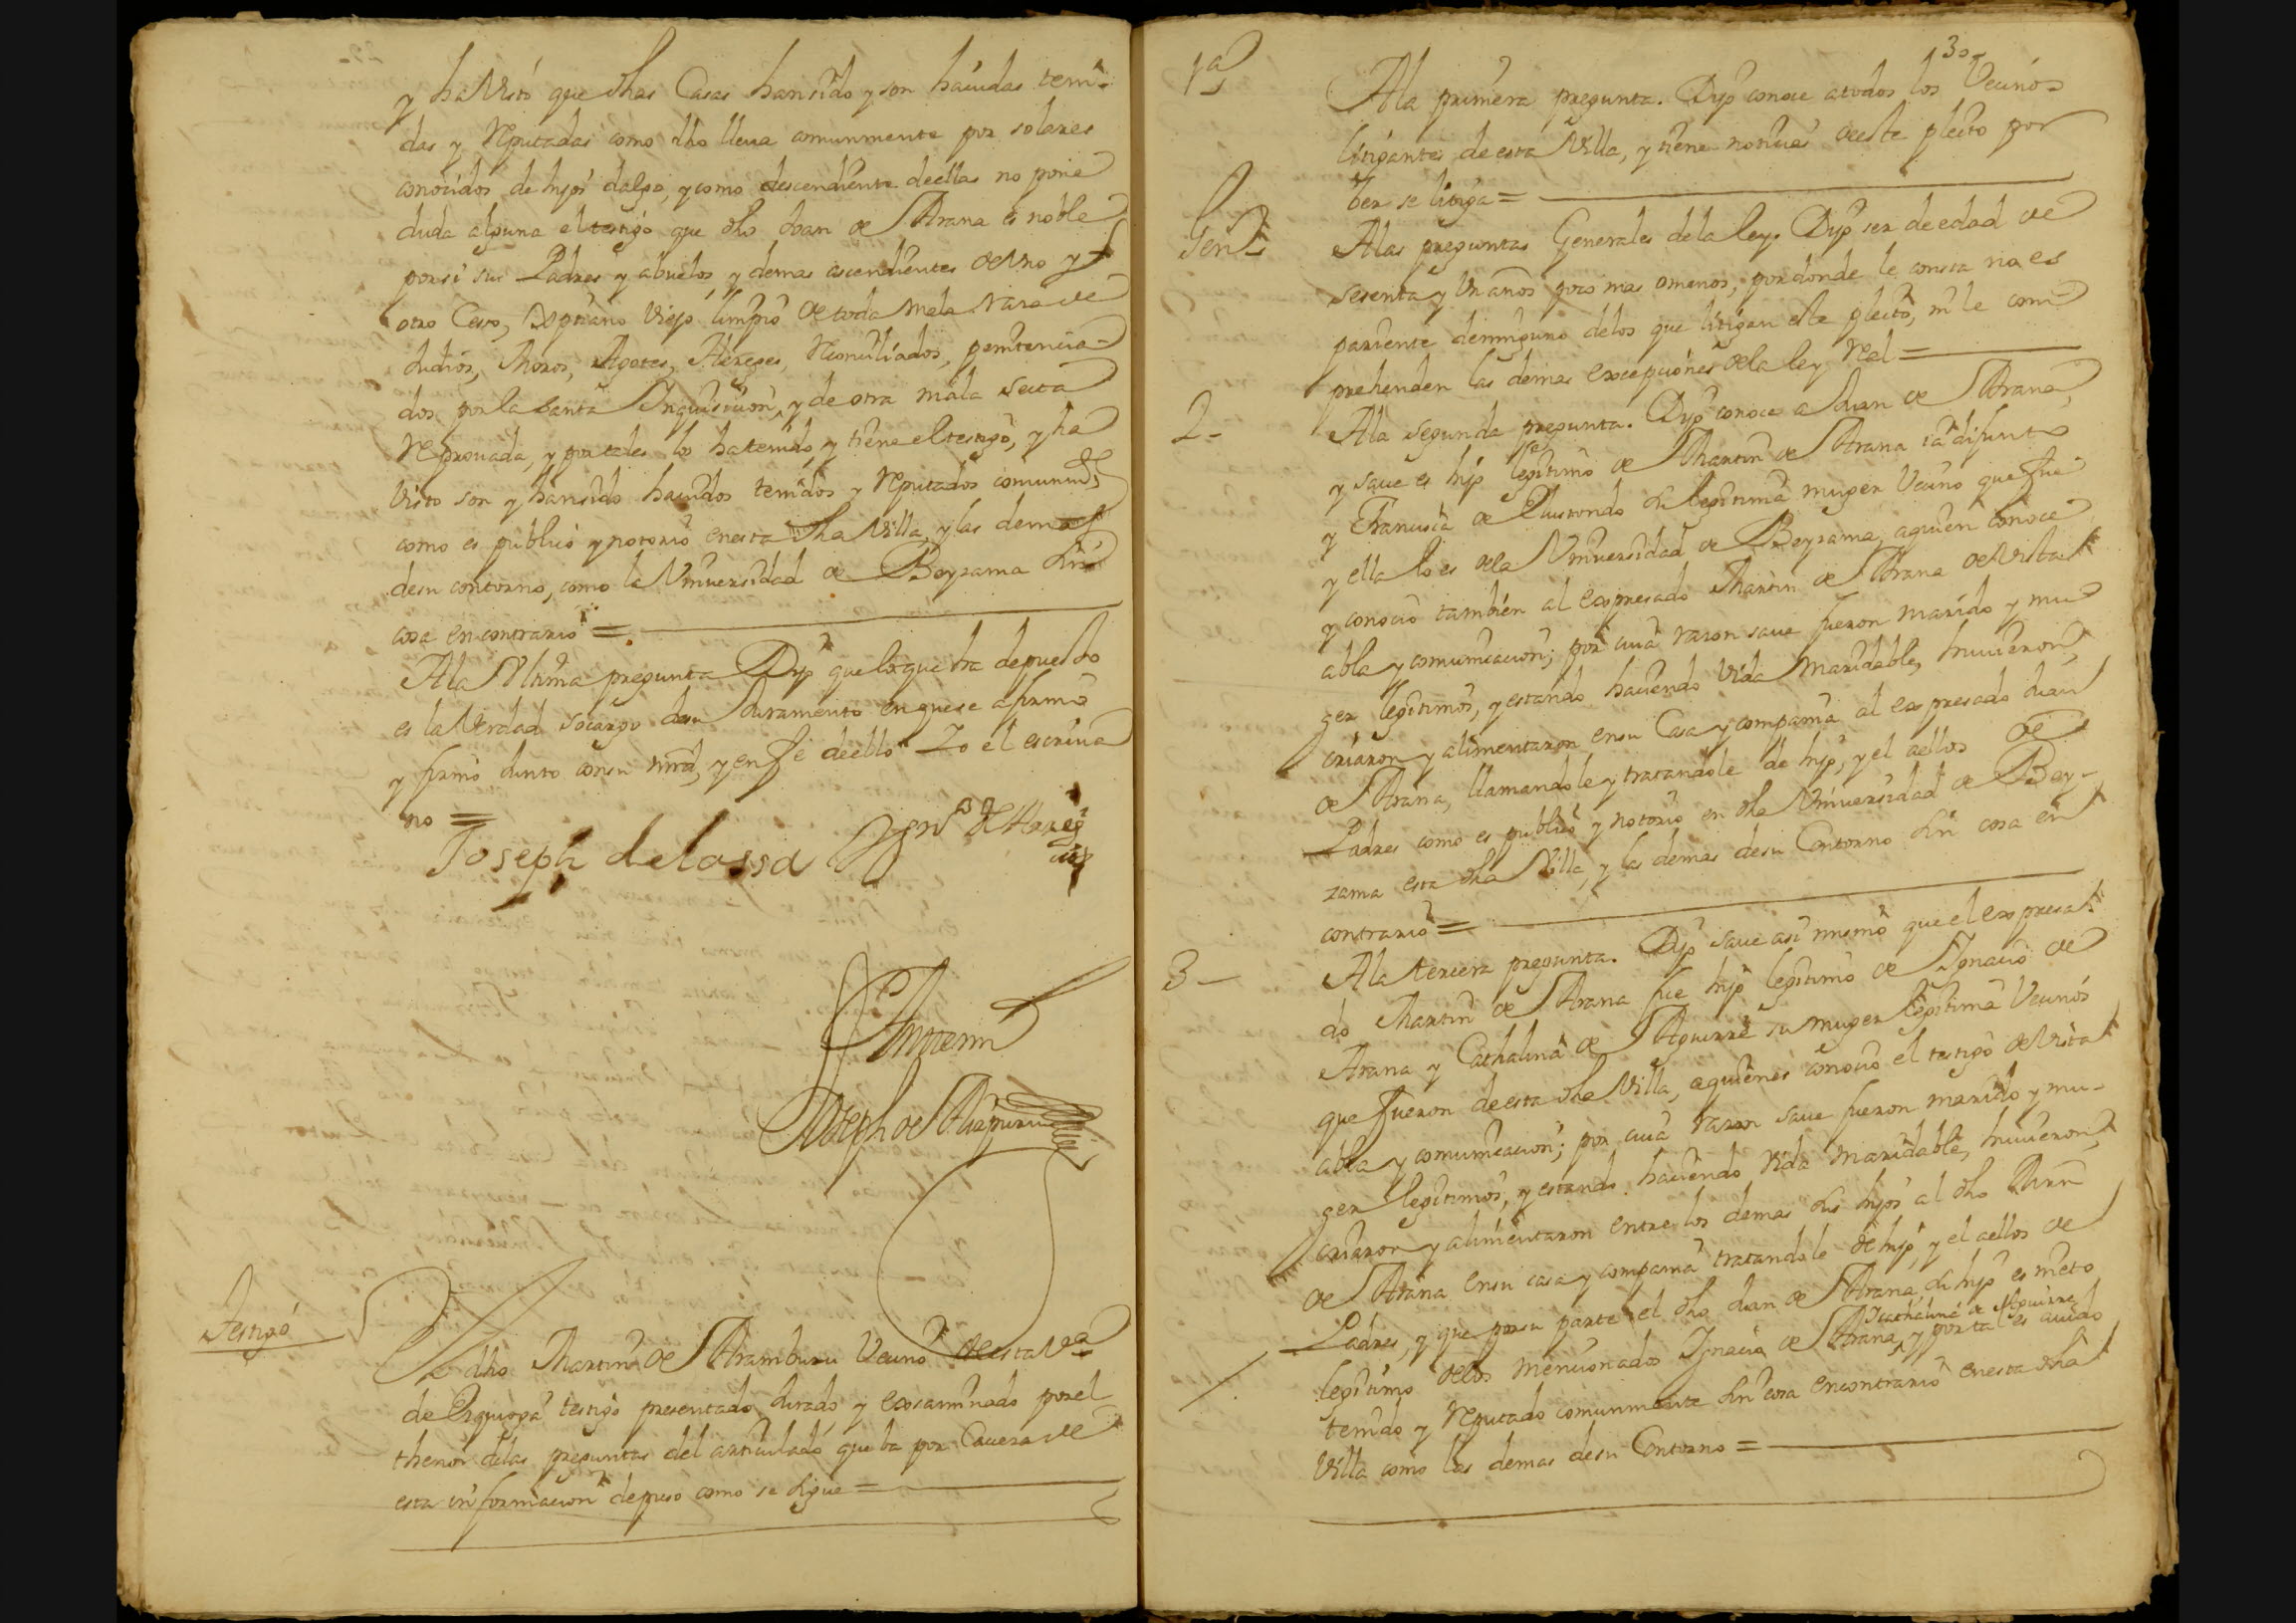 y ha Visto que dhas Casas hansido y son hauidas teni-
das y Reputadas como dho lleua comunmente por solares
conocidos de hijos dalgo, y como descendiente deellas no pone
duda alguna el testigo que dho Juan de Arana es noble
porsi sus Padres y abuelos y demas ascendientes de Vno y
otro Cexo, Xptiano Viejo limpio de toda mala raza de
Judios, Moros, Agotes, Hereges, Reconciliados, penitencia-
dos por la Santa Inquisicion, y de otra mala Secta
Reprouada, y por tales los hatenido y tiene eltestigo, y ha
Visto son y hansido hauidos tenidos y Reputados comunmte
como es publico y notorio enesta dha Villa, y las demas
desu contorno, como la Vniuersidad de Beyzama sin
cosa encontrario =
Ala Vltima pregunta Dijo queloque ha depuesto
es la Verdad socargo desu Juramento enquese afirmo
y firmo Junto consu mrd, y enfe deello Yo el escriua
no =
Joseph delassa
Antemi
Joseph de Aizpuru
Testigo
El dho Martin de Aramburu Vecino deesta Va
de Ezquioga testigo presentado Jurado y examinado porel
thenor delas preguntas del articulado que ba por Cauesa de
esta informacion depuso como se sigue =
30
1a
Ala primera pregunta. Dijo conoce atodos los Vecinos
litigantes de esta Villa, y tiene noticias deeste pleito por
ber se litiga =
Gens
Alas preguntas Generales dela ley. Dijo ser de edad de
sesenta y Vn años poco mas omenos, pordonde le consta no es
pariente deninguno delos que litigan este pleito, ni le com
prehenden las demas excepciones dela ley Real =
2-
Ala segunda pregunta. Dijo conoce a Juan de Arana,
y saue es hijo legitimo de Martin de Arana ia difunto
y Francisca de su legitima muger Vecino que fue
y ella lo es dela Vniuersidad de Beyzama, aquien conoce
y conocio tambien al expresado Martin de Arana de Vista
abla y comunicacion; por cuia razon saue fueron marido y mu
ger legitimos, y estando haciendo Vida Maridable, huuieron,
criaron y alimentaron ensu Casa y compania al expresado Juan
de Arana, llamandole y tratandole de hijo, y el aellos de
Padres como es publico y notorio en dha Vniuersidad de Bey-
zama esta dha Villa, y las demas desu Contorno sin cosa en
contrario =
3-
Ala tercera pregunta. Dijo saue asi mismo que el expresa
do Martin de Arana fue hijo legitimo de Ignacio de
Arana y Cathalina de Aguirre su muger legitima Vecinos
que fueron deesta dha Villa, aquienes conocio el testigo de Vista
abla y comunicacion; por cuia razon saue fueron marido y mu-
ger legitimos, y estando haciendo Vida maridable, huuieron,
criaron y alimentaron entre los demas sus hijos al dho Martin
de Arana ensu casa y compania tratandole de hijo, y el aellos de
Padres, y que porsu parte el dho Juan de Arana su hijo es nieto
legitimo delos mencionados Ignacio de Arana, y Cathalina de Aguirre y portal es auido
tenido y Reputado comunmente sin cosa encontrario enesta dha
Villa como las demas desu Contorno =